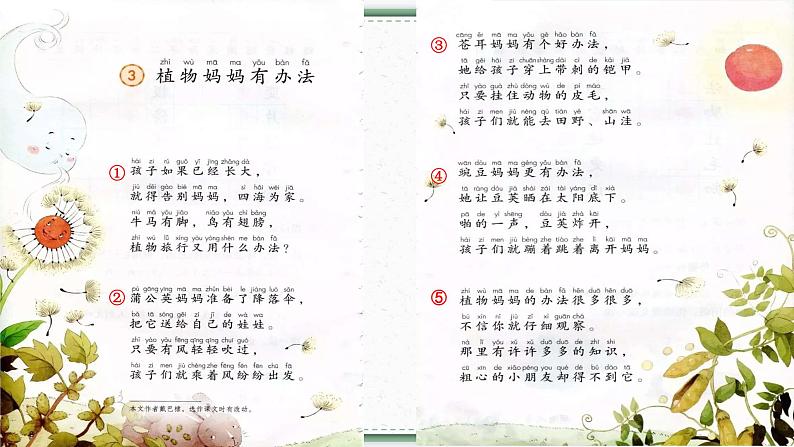 zhí wù mā ma yǒu bàn fǎ
3 植物妈妈有办法
hái zi rú guǒ yǐ jīng zhǎng dà
① 孩子如果已经长大，
jiù děi gào bié mā ma sì hǎi wéi jiā
就得告别妈妈，四海为家。
niú mǎ yǒu jiǎo niǎo yǒu chì bǎng
牛马有脚，鸟有翅膀，
zhí wù lǚ xíng yòu yòng shén me bàn fǎ
植物旅行又用什么办法？
pú gōng yīng mā ma zhǔn bèi le jiàng luò sǎn
② 蒲公英妈妈准备了降落伞，
bǎ tā sòng gěi zì jǐ de wá wa
把它送给自己的娃娃。
zhǐ yào yǒu fēng qīng qīng chuī guò
只要有风轻轻吹过，
hái zi men jiù chéng zhe fēng fēn fēn chū fā
孩子们就乘着风纷纷出发。
本文作者戴巴棣，选作课文时有改动。
cāng ěr mā ma yǒu gè hǎo bàn fǎ
③ 苍耳妈妈有个好办法，
tā gěi hái zi chuān shàng dài cì de kǎi jiǎ
她给孩子穿上带刺的铠甲。
zhǐ yào guà zhù dòng wù de pí máo
只要挂住动物的皮毛，
hái zi men jiù néng qù tián yě shān wā
孩子们就能去田野、山洼。
wān dòu mā ma gèng yǒu bàn fǎ
④ 豌豆妈妈更有办法，
tā ràng dòu jiá shài zài tài yáng dǐ xià
她让豆荚晒在太阳底下。
pā de yì shēng dòu jiá zhà kāi
啪的一声，豆荚炸开，
hái zi men jiù bèng zhe tiào zhe lí kāi mā ma
孩子们就蹦着跳着离开妈妈。
zhí wù mā ma de bàn fǎ hěn duō hěn duō
⑤ 植物妈妈的办法很多很多，
bú xìn nǐ jiù zǐ xì guān chá
不信你就仔细观察。
nà lǐ yǒu xǔ xǔ duō duō de zhī shi
那里有许许多多的知识，
cū xīn de xiǎo péng yǒu què dé bú dào tā
粗心的小朋友却得不到它。